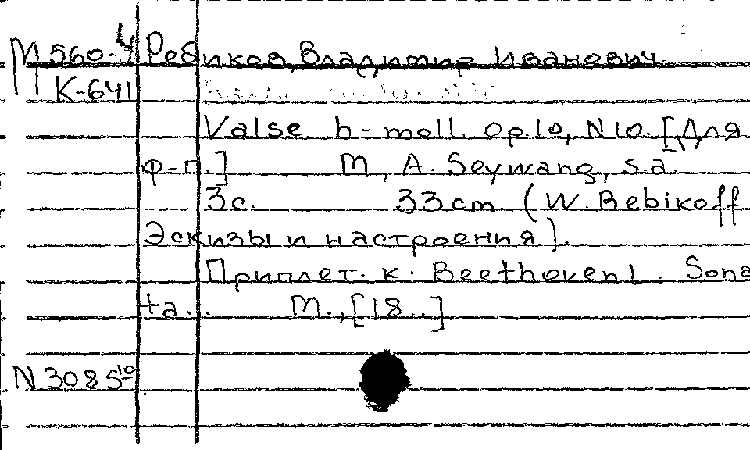 М 560-4 Ребиков, Владимир Иванович.
К-641
Valse h-moll. op.10, N10. [Для
ф-п.] М., A. Seywang, s.a.
3с. 33cm (W. Rebikoff
Эскизы и настроения).
Приплет. к. Beethoven L. Sona-
ta... М., [18..]
N 3085 10